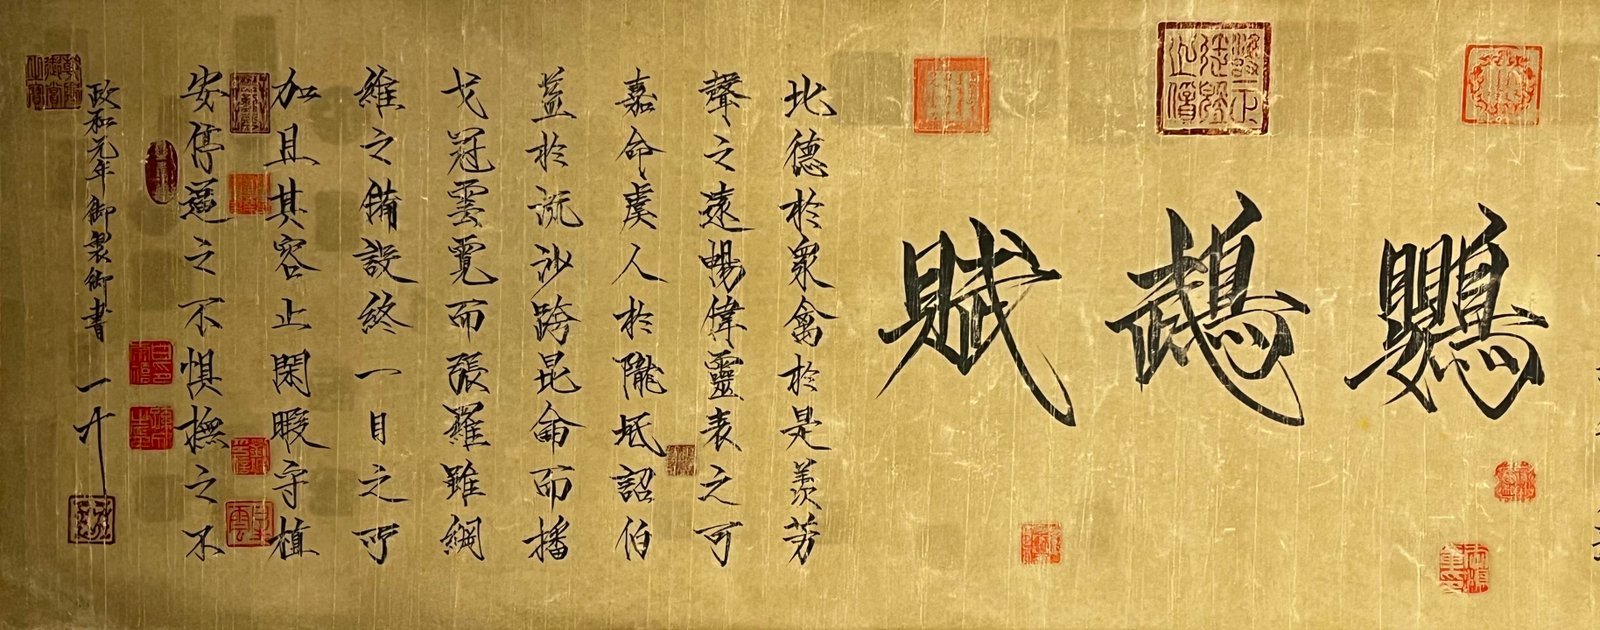 鸚鵡賦
比德於衆禽於是羨芳
聲之遠暢偉靈表之可
嘉命虞人於隴坻詔伯
益於流沙跨昆侖而播
弋冠雲霓而張羅雖綱
維之備設終一目之所
加且其容止閑暇守植
安停逼之不懼撫之不
政和元年御製御書